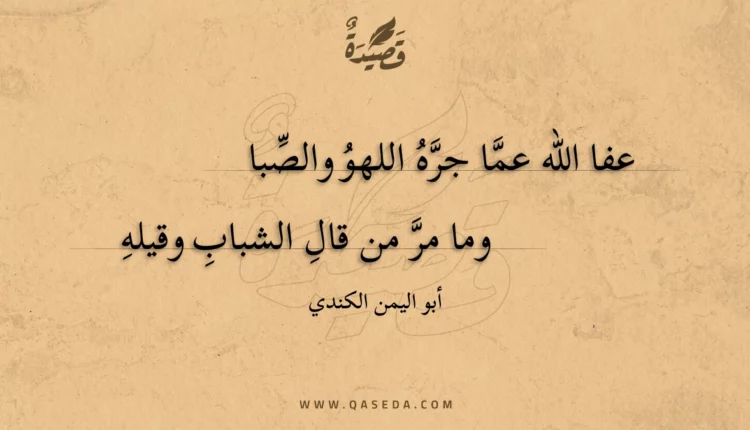 قَصِيْدَةٌ
عفا الله عمَّا جرَّهُ اللهوُ والصِّبا
وما مرَّ من قالِ الشبابِ وقيلهِ
أبو اليمن الكندي
WWW.QASEDA.COM